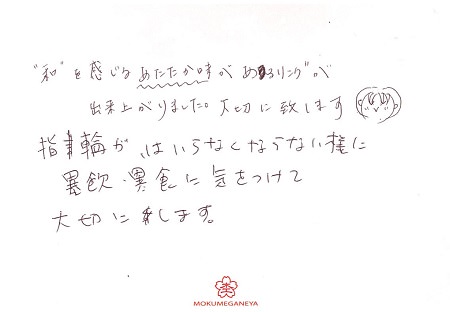 "和"を感じるあたたか味が あるリング"が
出来上がりました。大切に致します
指輪が、はいらなくならない様に
暴飲・暴食に気をつけて
大切にします。
MOKUMEGANEYA